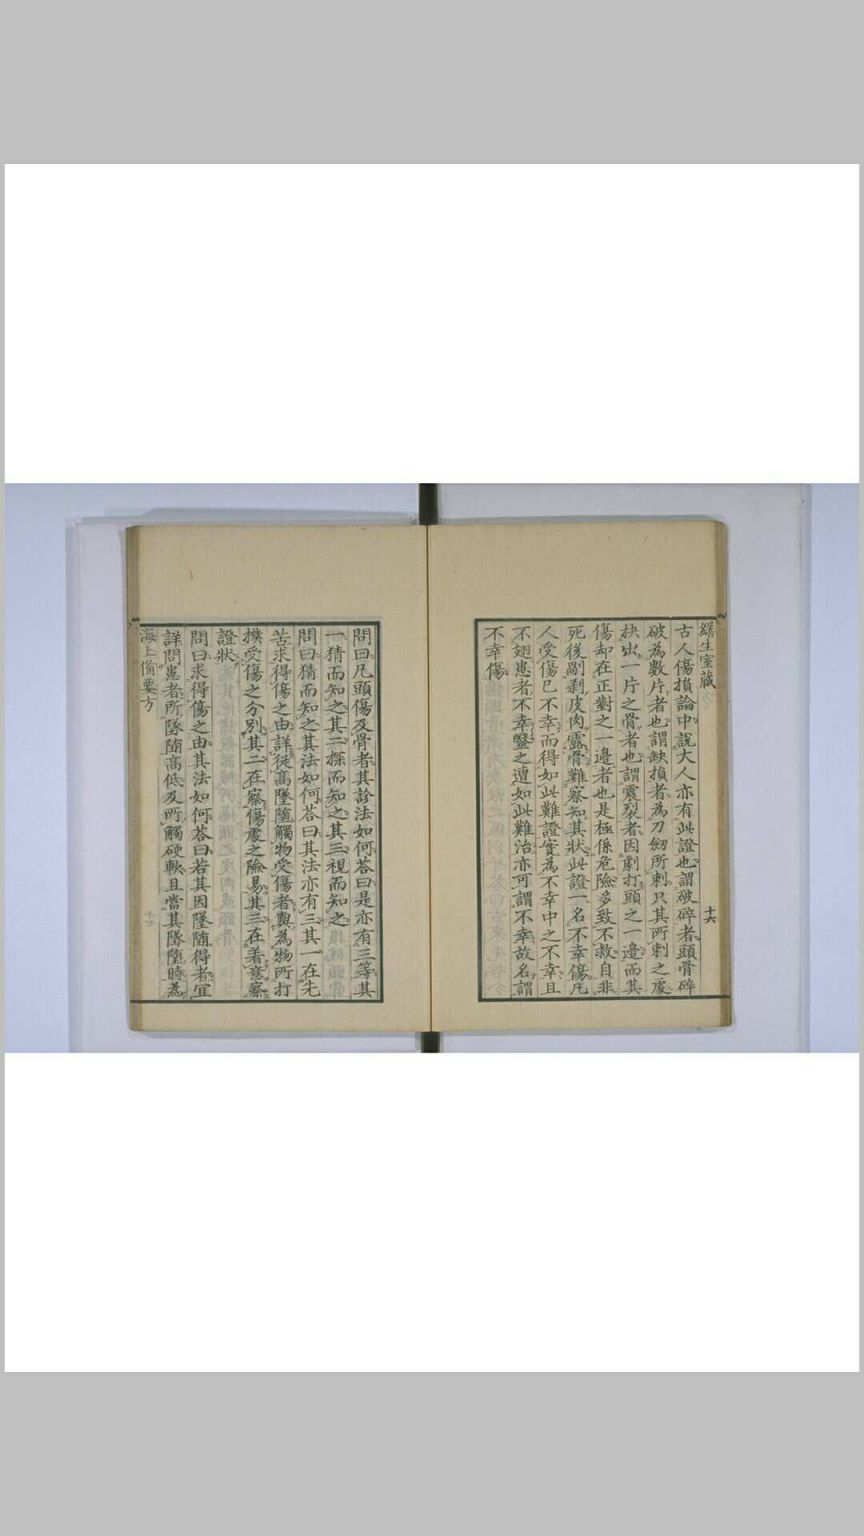 生室藏
十六
古人傷損論中說大人亦有此證也謂破碎者頭骨碎
破為數片者也謂缺損者為刀劒所刺只其所刺之處
抉出一片之骨者也謂震裂者因劇打頭之一邊而其
傷却在正對之一邊者也是極係危險多致不救自非
死後剮剥皮肉露骨難察知其狀此證一名不幸傷凡
人受傷已不幸而得如此難證實為不幸中之不幸且
不翅患者不幸醫之遭如此難治亦可謂不幸故名謂
不幸傷
問曰凡頭傷及骨者其診法如何荅曰是亦有三等其
一猜而知之其二探而知之其三視而知之
問曰猜而知之其法如何荅曰其法亦有三其一在先
苦求得傷之由詳從高墜墮觸物受傷者與為物所打
撲受傷之分別其二在察傷處之險易其三在着意察
證狀
問曰求得傷之由其法如何荅曰若其因墜堕得者宜
詳問患者所墜堕高低及所觸硬軟且當其墜墮時為
海上備要方